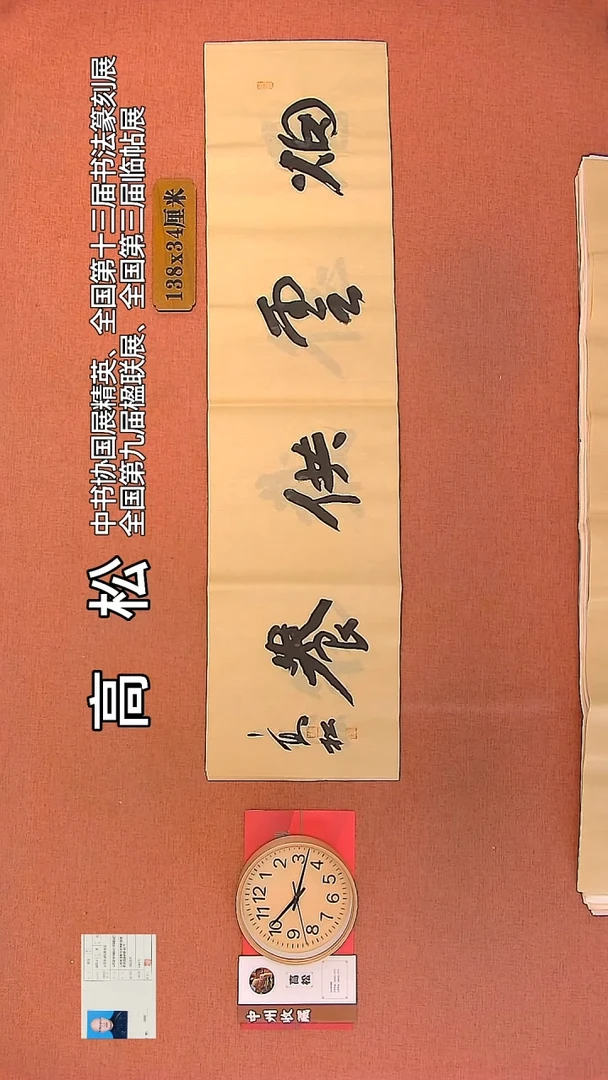 高 松
中书协国展精英、全国第十三届书法篆刻展
全国第九届楹联展、全国第三届临帖展
138x34厘米
烟雲供養
高松
12
1
2
3
4
5
6
7
8
9
10
11
高松
中州收藏